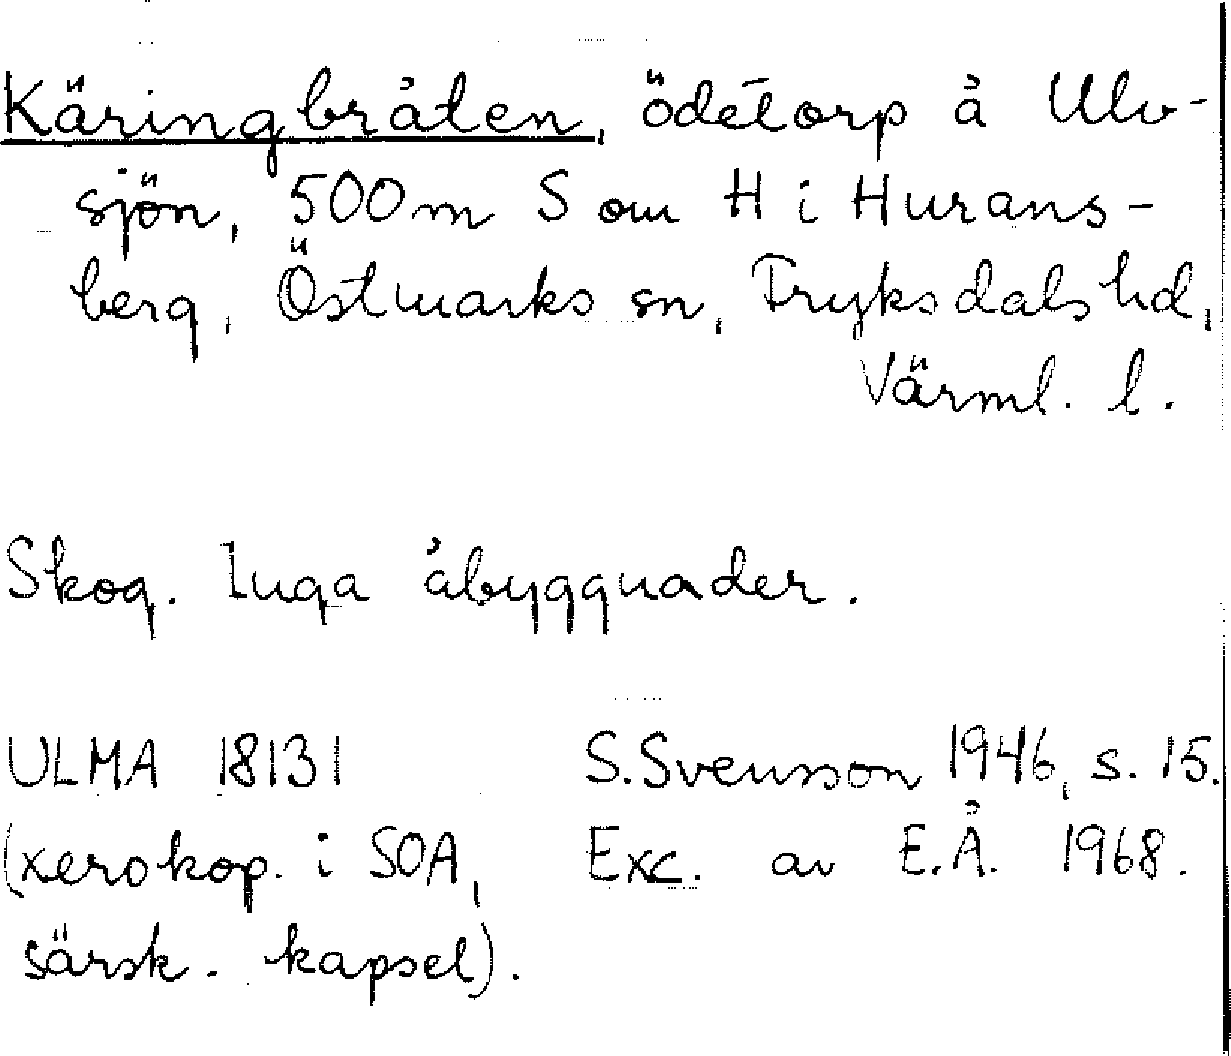 Käringbråten, ödetorp å Ulv-
sjön, 500m S om H i Hurans-
berg, Östmarks sn, Fryksdals hd,
Värml. l.
Skog. Inga åbyggnader.
ULMA 18131 S. Svensson 1946, s. 15.
(xerokop. i SOA, Exc. av E.Å. 1968.
särsk. kapsel).